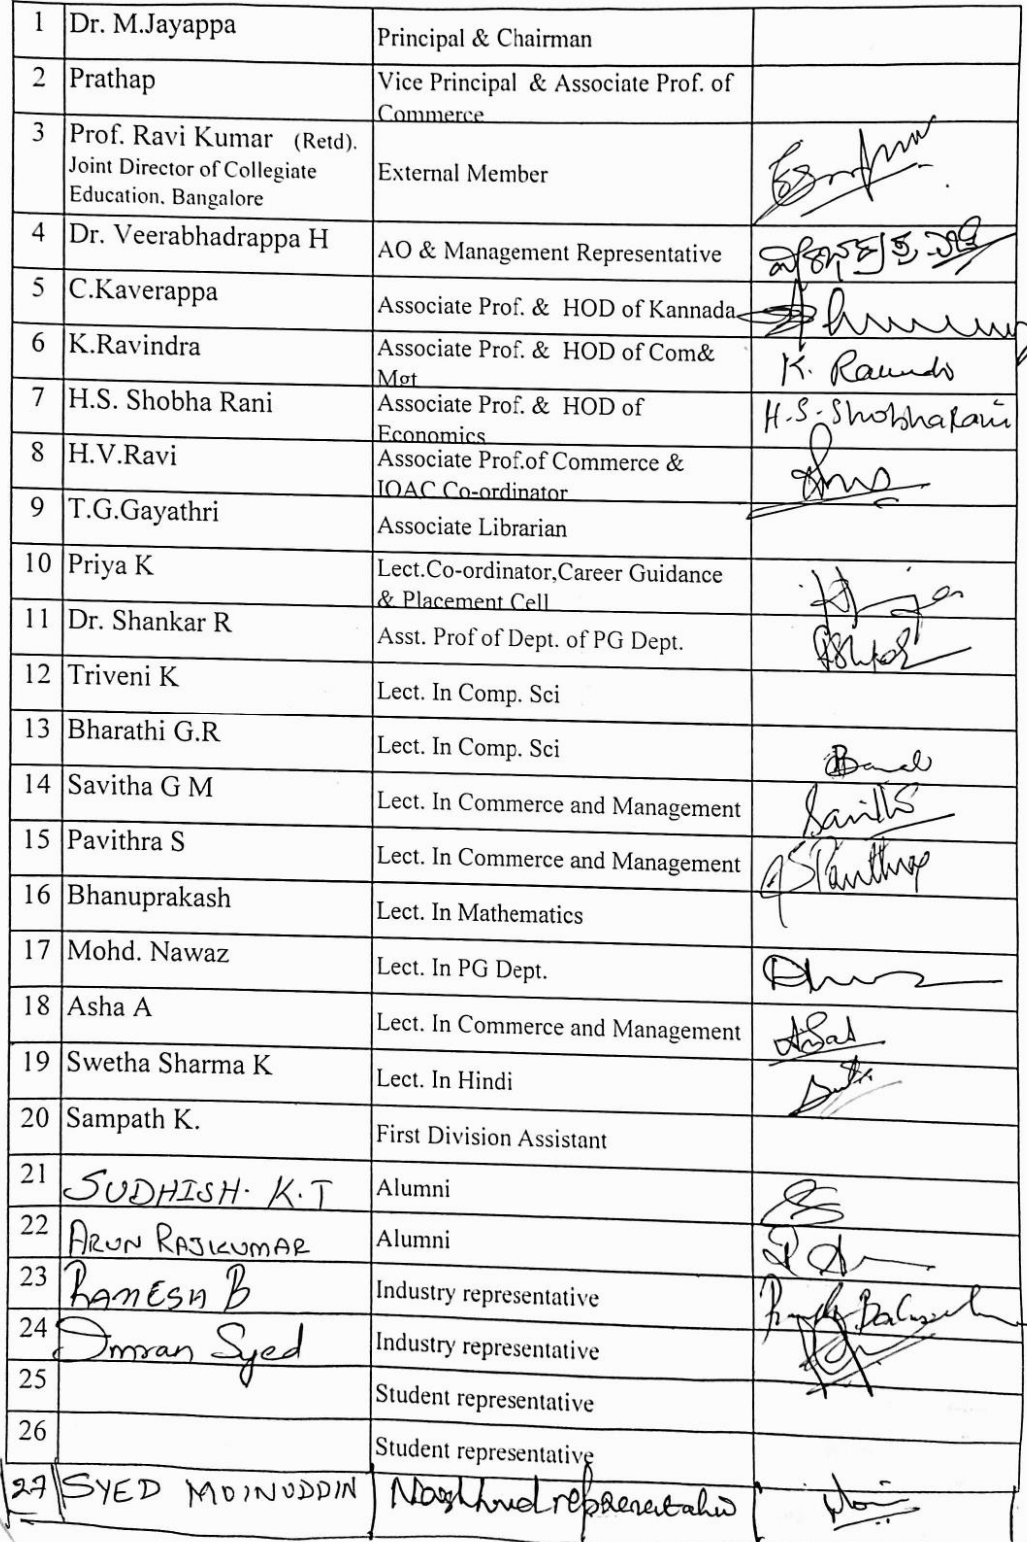 1 Dr. M.Jayappa Principal & Chairman
2 Prathap Vice Principal & Associate Prof. of
Commerce
3 Prof. Ravi Kumar (Retd). External Member
Joint Director of Collegiate
Education. Bangalore
4 Dr. Veerabhadrappa H AO & Management Representative
5 C.Kaverappa Associate Prof. & HOD of Kannada
6 K.Ravindra Associate Prof. & HOD of Com&
Mgt
7 H.S. Shobha Rani Associate Prof. & HOD of H.S. Shobha Rani
Economics
8 H.V.Ravi Associate Prof.of Commerce &
IQAC Co-ordinator
9 T.G.Gayathri Associate Librarian
10 Priya K Lect.Co-ordinator,Career Guidance
& Placement Cell
11 Dr. Shankar R Asst. Prof of Dept. of PG Dept.
12 Triveni K Lect. In Comp. Sci
13 Bharathi G.R Lect. In Comp. Sci
14 Savitha G M Lect. In Commerce and Management
15 Pavithra S Lect. In Commerce and Management
16 Bhanuprakash Lect. In Mathematics
17 Mohd. Nawaz Lect. In PG Dept.
18 Asha A Lect. In Commerce and Management
19 Swetha Sharma K Lect. In Hindi
20 Sampath K. First Division Assistant
21 SUDHISH. K.T Alumni
22 ARUN RAJKUMAR Alumni
23 RAMESH B Industry representative
24 Imran Syed Industry representative
25 Student representative
26 Student representative
27 SYED MOINUDDIN